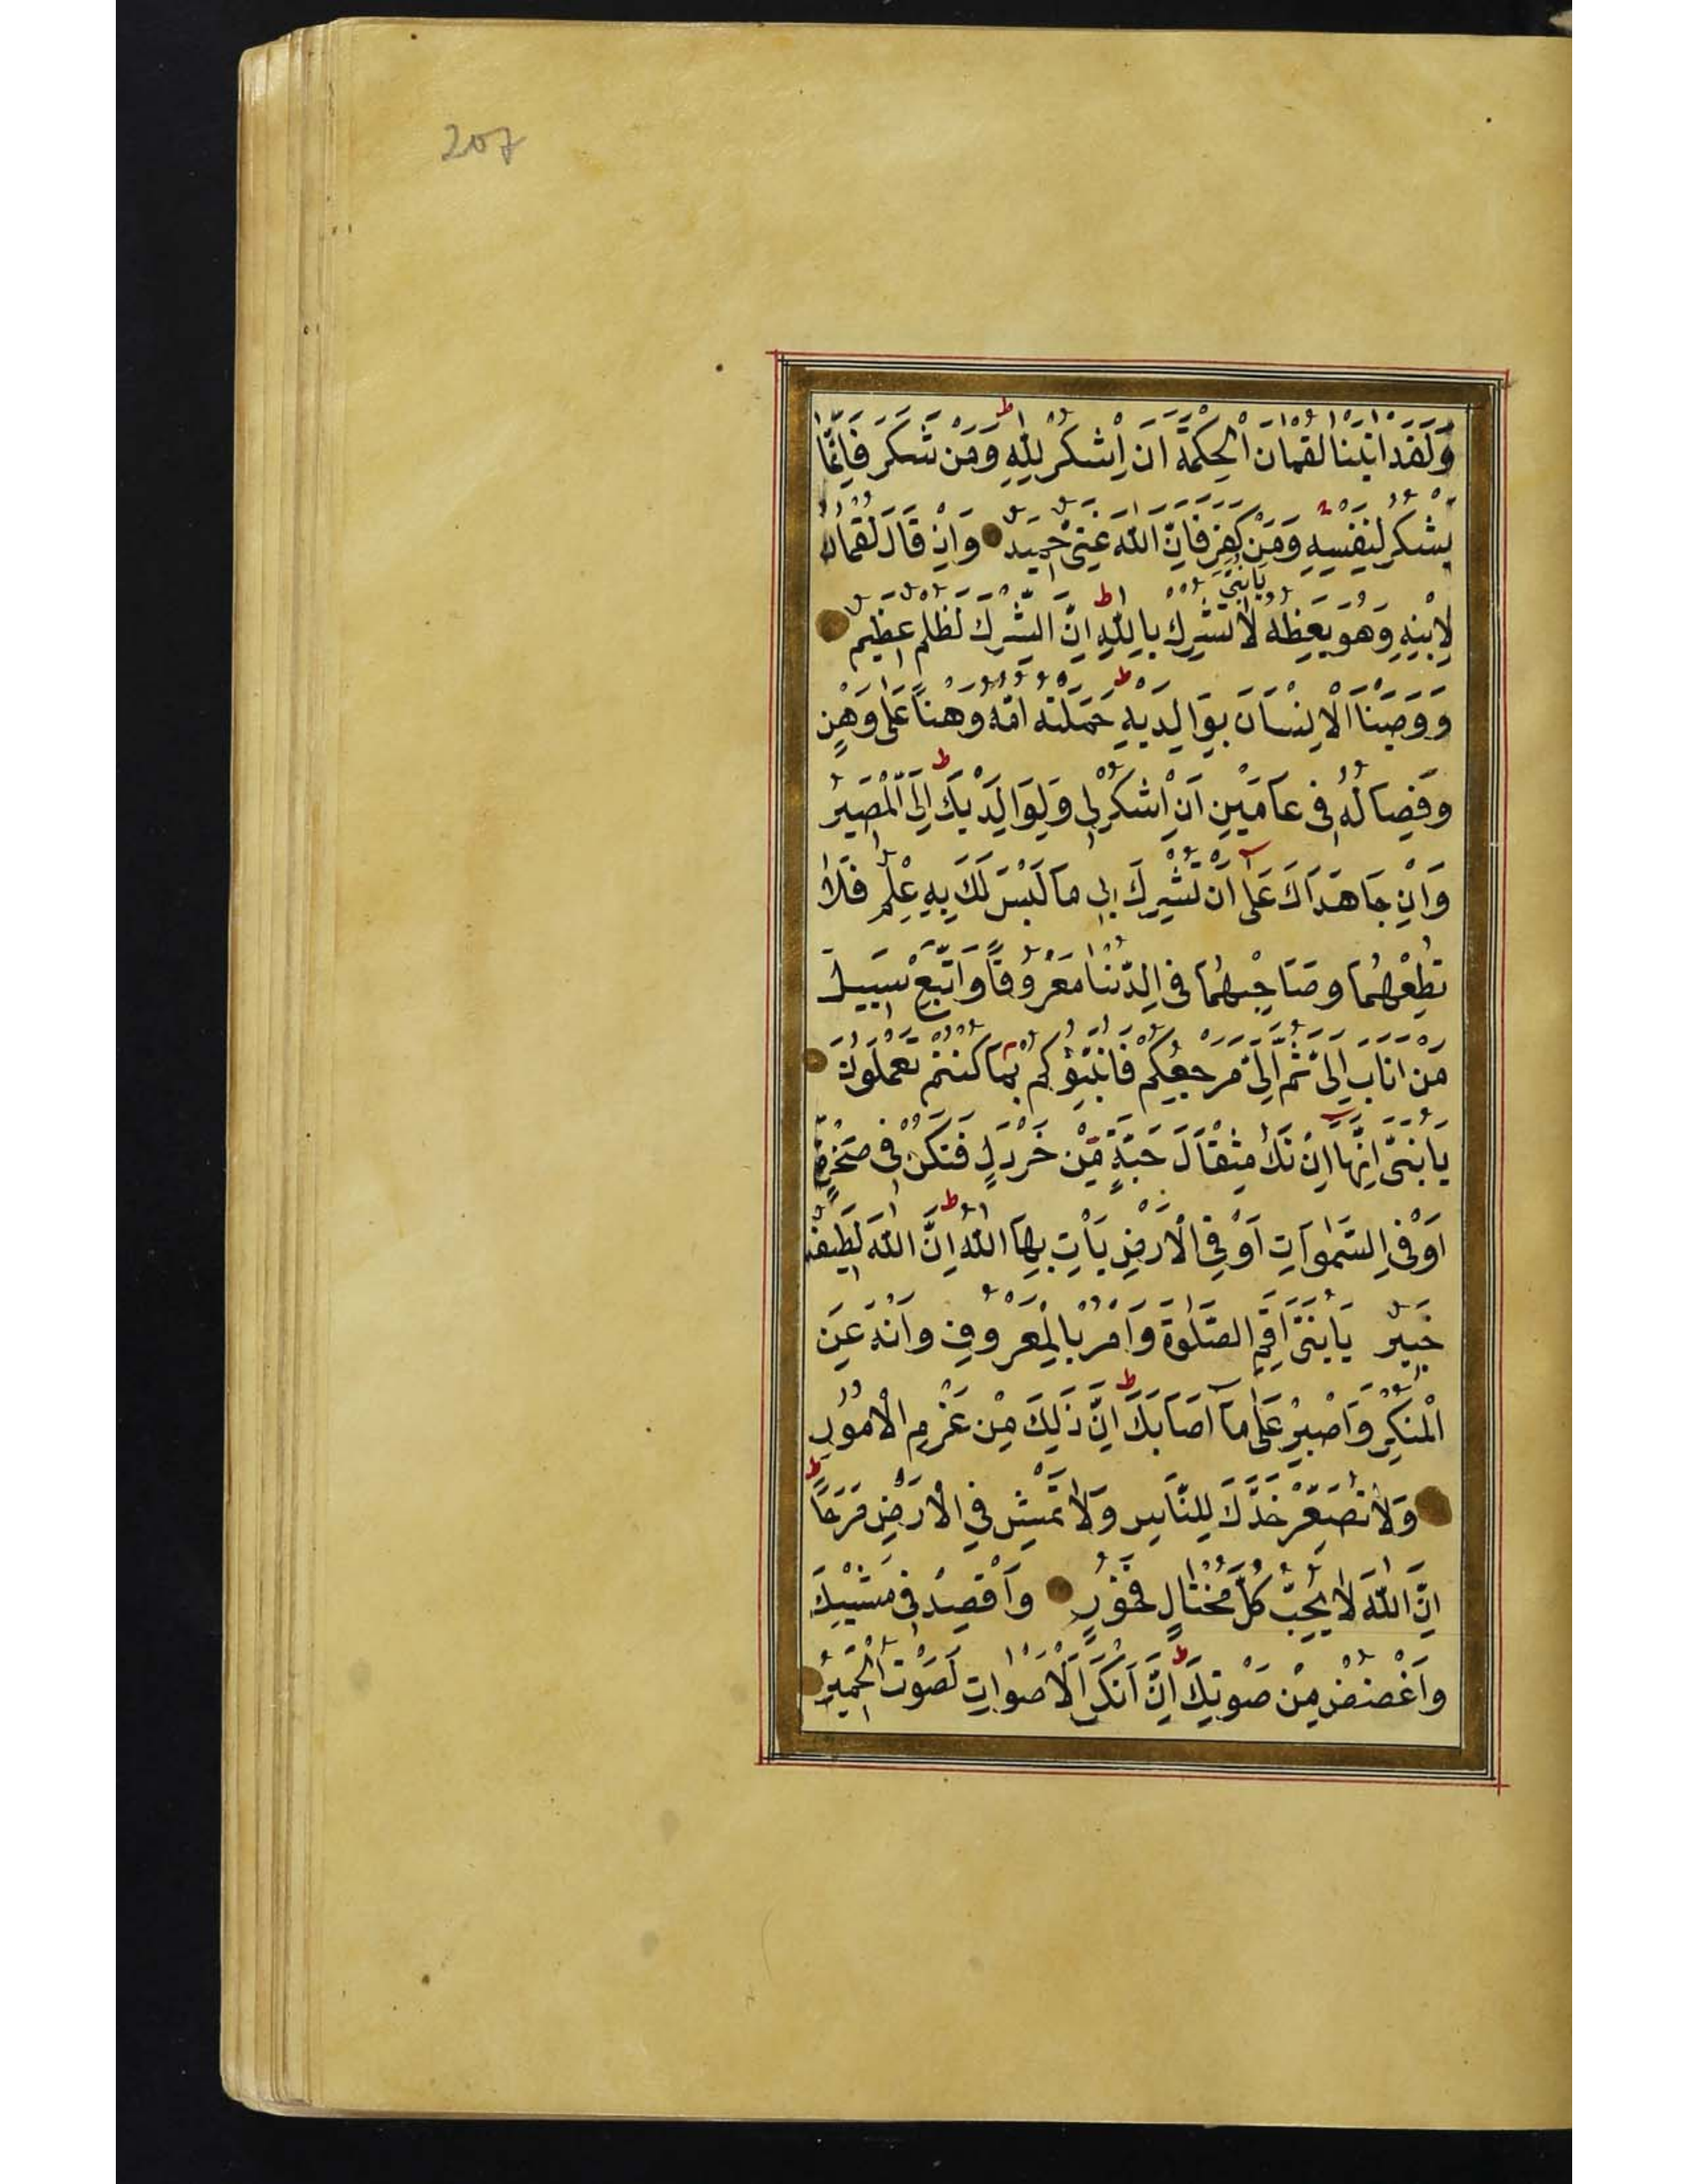 207
وَلَقَدْ اٰتَيْنَا لُقْمَانَ الْحِكْمَةَ اَنِ اشْكُرْ لِلّٰهِ ط وَمَنْ شَكَرَ فَاِنَّمَا
يَشْكُرُ لِنَفْسِهِ وَمَنْ كَفَرَ فَاِنَّ اللّٰهَ غَنِىٌّ حَمِيدٌ وَاِذْ قَالَ لُقْمَانُ
يَابُنَىَّ
لِابْنِهِ وَهُوَ يَعِظُهُ لَا تُشْرِكْ بِاللّٰهِ ط اِنَّ الشِّرْكَ لَظُلْمٌ عَظِيمٌ
وَوَصَّيْنَا الْاِنْسَانَ بِوَالِدَيْهِ ط حَمَلَتْهُ اُمُّهُ وَهْنًا عَلَى وَهْنٍ
وَفِصَالُهُ فِى عَامَيْنِ اَنِ اشْكُرْ لِى وَلِوَالِدَيْكَ ط اِلَىَّ الْمَصِيرُ
وَاِنْ جَاهَدَاكَ عَلٰٓى اَنْ تُشْرِكَ بِى مَا لَيْسَ لَكَ بِهِ عِلْمٌ فَلَا
تُطِعْهُمَا وَصَاحِبْهُمَا فِى الدُّنْيَا مَعْرُوفًا وَاتَّبِعْ سَبِيلَ
مَنْ اَنَابَ اِلَىَّ ثُمَّ اِلَىَّ مَرْجِعُكُمْ فَاُنَبِّئُكُمْ بِمَا كُنْتُمْ تَعْمَلُونَ
يَابُنَىَّ اِنَّهَا اِنْ تَكُ مِثْقَالَ حَبَّةٍ مِنْ خَرْدَلٍ فَتَكُنْ فِى صَخْرَةٍ
اَوْ فِى السَّمٰوَاتِ اَوْ فِى الْاَرْضِ يَأْتِ بِهَا اللّٰهُ ط اِنَّ اللّٰهَ لَطِيفٌ
خَبِيرٌ يَابُنَىَّ اَقِمِ الصَّلٰوةَ وَاْمُرْ بِالْمَعْرُوفِ وَانْهَ عَنِ
الْمُنْكَرِ وَاصْبِرْ عَلٰى مَآ اَصَابَكَ ط اِنَّ ذٰلِكَ مِنْ عَزْمِ الْاُمُورِ
وَلَا تُصَعِّرْ خَدَّكَ لِلنَّاسِ وَلَا تَمْشِ فِى الْاَرْضِ مَرَحًا ط
اِنَّ اللّٰهَ لَا يُحِبُّ كُلَّ مُخْتَالٍ فَخُورٍ وَاقْصِدْ فِى مَشْيِكَ
وَاغْضُضْ مِنْ صَوْتِكَ ط اِنَّ اَنْكَرَ الْاَصْوَاتِ لَصَوْتُ الْحَمِيرِ